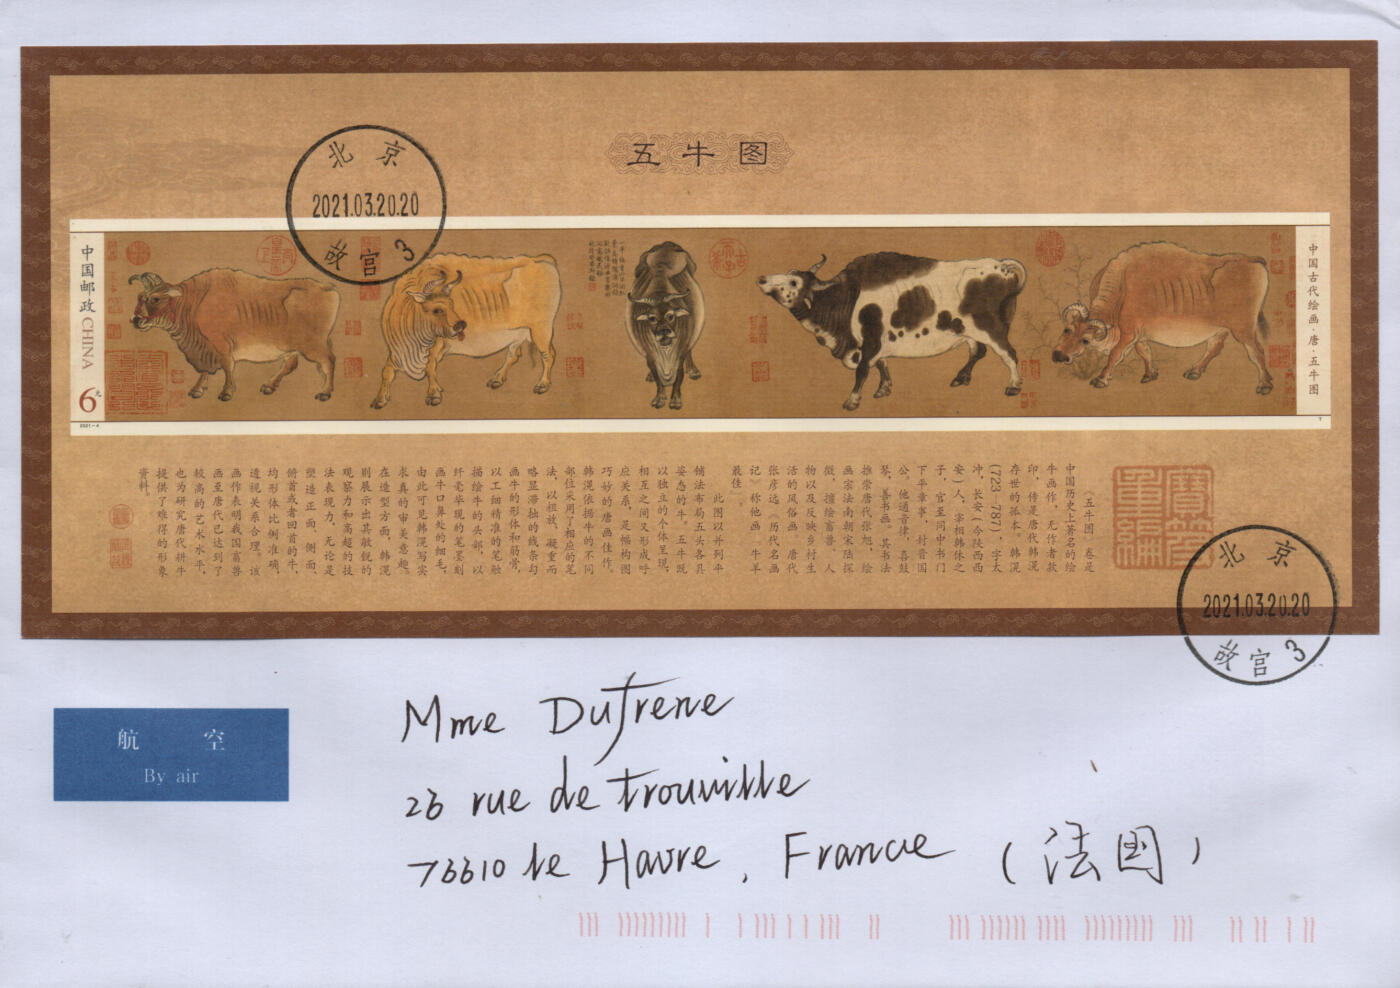 五牛图
北京
2021.03.20.20
故宫 3
中国邮政 CHINA
6元
2021-4
中国古代绘画·唐·五牛图
《五牛图》卷是
中国历史上著名的绘
牛画作，无作者款
印，传是唐代韩滉
存世的孤本。韩滉
(723—787)，字太
冲，长安（今陕西西
安）人，宰相韩休之
子，官至同中书门
下平章事，封晋国
公。他通音律，喜鼓
琴，善书画。其书法
推崇唐代张旭，绘
画宗法南朝宋陆探
微，擅绘畜兽、人
物以及反映乡村生
活的风俗画。唐代
张彦远《历代名画
记》称他画“牛羊
最佳”。
此图以并列平
铺法布局五头各具
姿态的牛。五牛既
以独立的个体呈现，
相互之间又形成呼
应关系，是幅构图
巧妙的唐画佳作。
韩滉依据牛的不同
部位采用了相应的笔
法，以粗放、凝重而
略显滞拙的线条勾
画牛的形体和筋骨，
以工细精准的笔触
描绘牛的头部，以
纤毫毕现的笔墨刻
画牛口鼻处的细毛，
由此可见韩滉写实
求真的审美意趣。
在造型方面，韩滉
则展示出其敏锐的
观察力和高超的技
法表现力，无论是
塑造正面、侧面、
俯首或者回首的牛，
均形体比例准确，
透视关系合理。该
画作表明我国畜兽
画至唐代已达到了
较高的艺术水平，
也为研究唐代耕牛
提供了难得的形象
资料。
北京
2021.03.20.20
故宫 3
航 空
By air
Mme Dufrene
26 rue de trouville
76610 le Havre, France (法国)